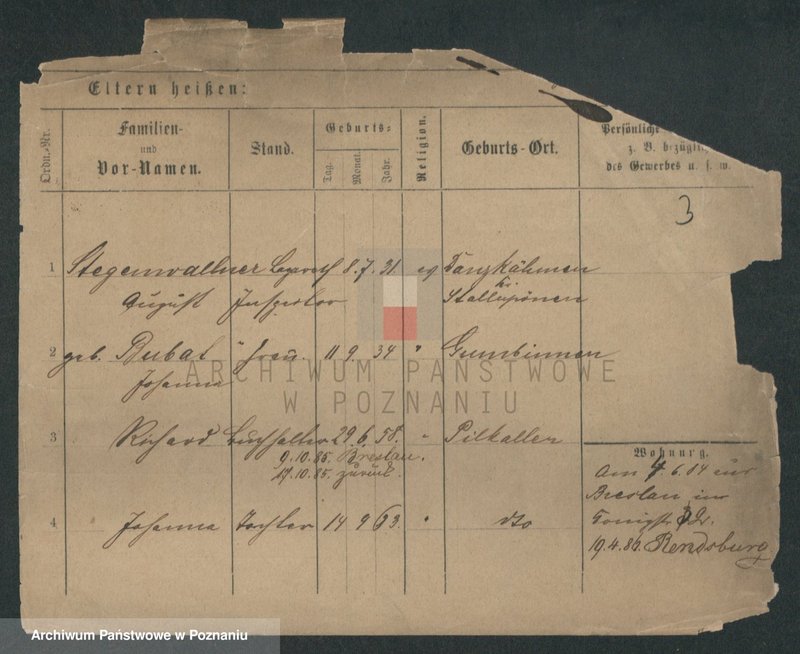 Eltern heißen:
Ordn.-Nr.
Familien-
und
Vor-Namen.
Stand.
Geburts-
Tag.
Monat.
Jahr.
Religion.
Geburts-Ort.
Persönliche
z. B. bezügli
des Gewerbes u. s. w.
3
1 Stegenwallner 8. 7. 31 ev Tanzkähmen
August Inspector Kr. Stallupönen
2 geb. Bubat " Frau. 11 9. 34 " Gumbinnen
Johanna
3 Richard Buchhalter 29. 6. 58. " Pilkallen
9.10.85. Breslau.
17.10.85. zurück.
4 Johanna Tochter 14 9 63. " dto
Wohnung.
Am 4.6.84 aus
Breslau
19.4.86. Rendsburg
ARCHIWUM PAŃSTWOWE
W POZNANIU
Archiwum Państwowe w Poznaniu